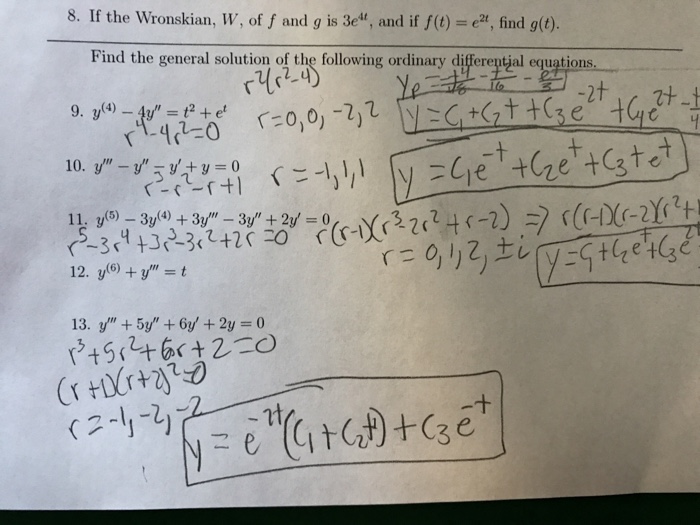 8. If the Wronskian, W, of f and g is 3e^{4t}, and if f(t) = e^{2t}, find g(t).
Find the general solution of the following ordinary differential equations.
r²(r²-4)
y_p = -t⁴/48 - t²/16 - e^t/3
9. y^{(4)} − 4y'' = t² + e^t
r⁴-4r²=0
r=0,0,-2,2
y=c₁+c₂t+c₃e^{-2t}+c₄e^{2t}-
10. y''' − y'' − y' + y = 0
r³-r²-r+1
r=-1,1,1
y=c₁e^{-t}+c₂e^t+c₃te^t
11. y^{(5)} − 3y^{(4)} + 3y''' − 3y'' + 2y' = 0
r⁵-3r⁴+3r³-3r²+2r=0
r(r-1)(r³-2r²+r-2) => r(r-1)(r-2)(r²+1
r=0,1,2,±i
y=c₁+c₂e^t+c₃e^{2t}
12. y^{(6)} + y''' = t
13. y''' + 5y'' + 6y' + 2y = 0
r³+5r²+6r+2=0
(r+1)(r+2)²=0
r=-1,-2,-2
y=e^{-2t}(c₁+c₂t)+c₃e^{-t}